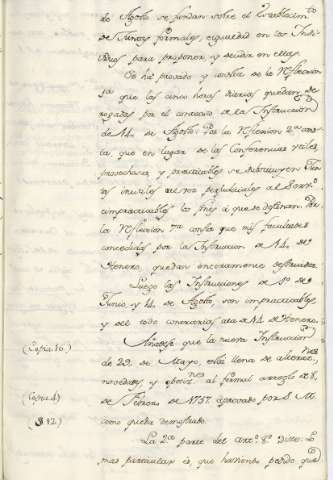 de Agosto se fundan sobre el Establecim.to
de Juntas formales, e igualdad en los Indi-
viduos para proponer, y decidir en ellas.
Se ha provado y consta de la Reflexion
que las cinco horas diarias quedan de-
rogadas por el contexto de la Instruccion
de 14. de Agosto: Por la Reflexion 2.a cons-
ta que en lugar de las Conferencias utiles
provechosas y practicables se substituyen Jun-
tas inutiles al Rey perjudiciales al
impracticables los fines a que se destinan. Por
la Reflexion 7.a consta que mis facultades
concedidas por la Instruccion de 14. de
Henero, quedan enteramente destruidas.
Luego las Instrucciones de 1.o de
Junio y 14. de Agosto, son impracticables,
y del todo contrarias a la de 14. de Henero.
Añadese que la nueva Instruccion
(Copia 16.) de 29. de Mayo, està llena de
novedades y al formal arreglo de 8.
(Copia 4) de Febrero de 1757. aprovado por S. M.
(§ 12.) como queda demostrado.
La 2.a parte del art.o 8.o
mas particular es, que haviendo perdido que